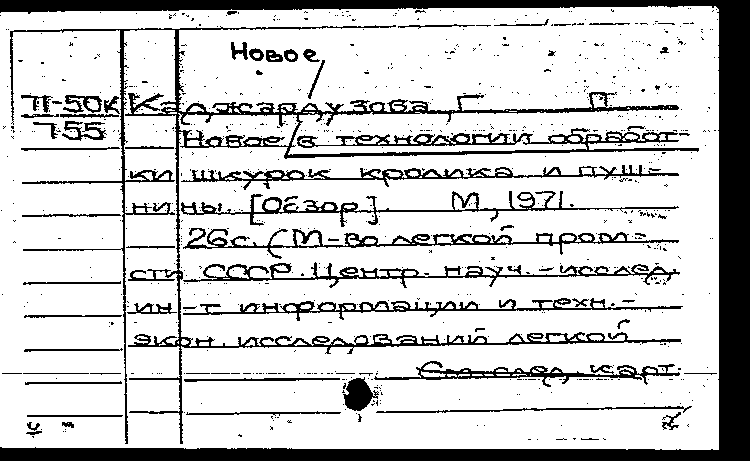 Новое
П-50к Каджардузова, Г П
755 Новое в технологии обработ-
ки шкурок кролика и пуш-
нины. [Обзор]. М., 1971.
26с. (М-во легкой пром-
сти СССР. Центр. науч.-исслед.
ин-т информации и техн.-
экон. исследований легкой
См. след. карт.